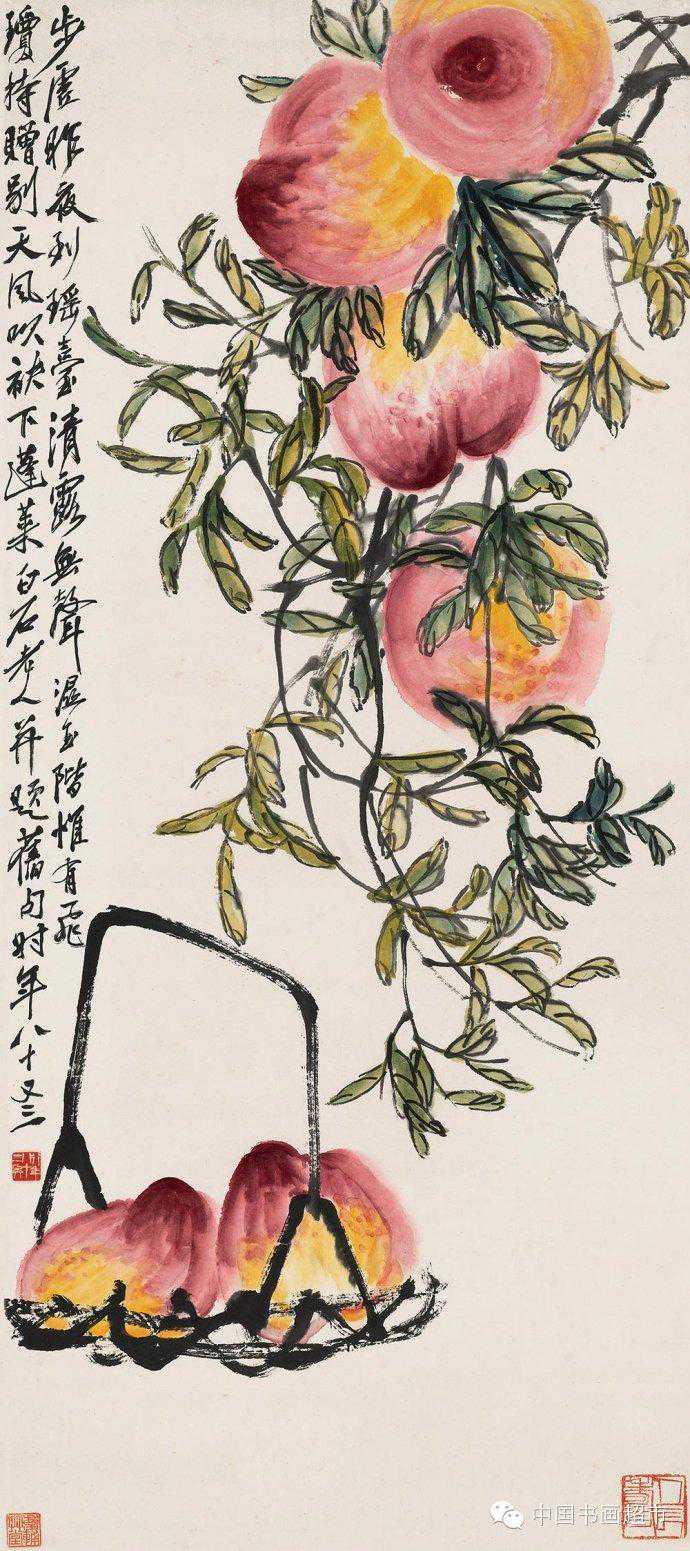 步虛昨夜到瑶臺清露無聲濕玉階惟有飛
瓊持贈別天風吹袂下蓬萊白石老人并題舊句時年八十又三
中国书画超市